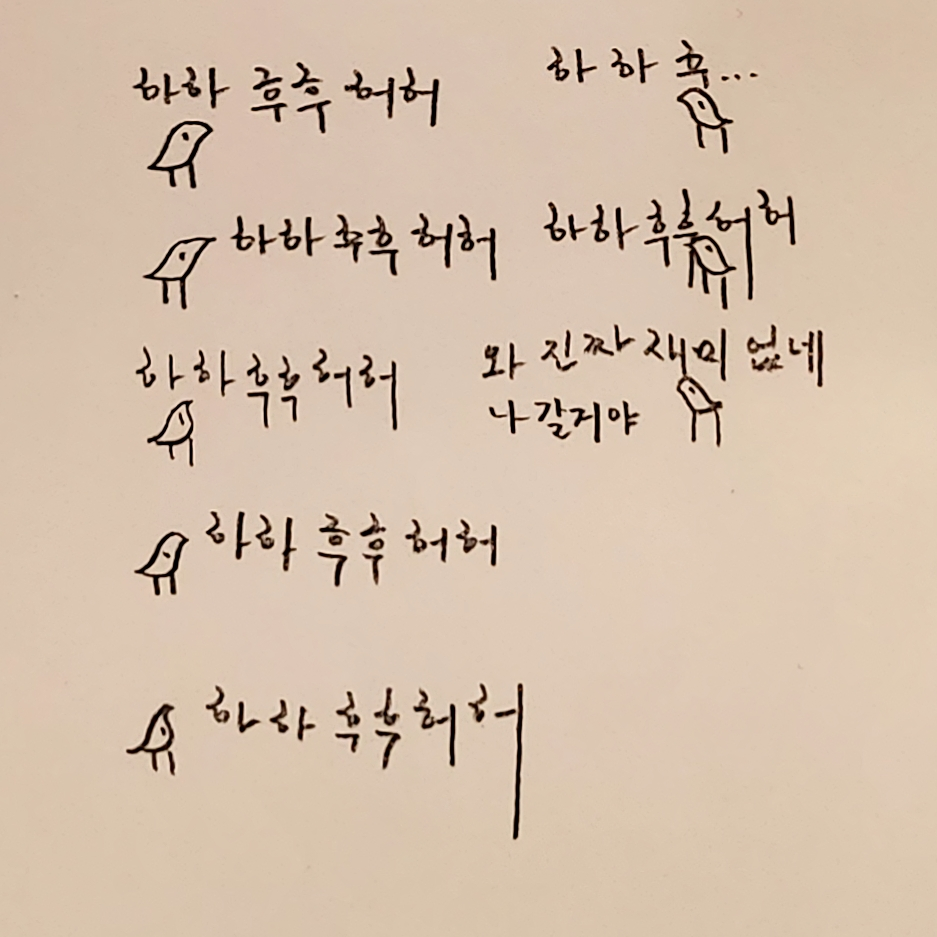 하하 후후 허허
하하 후후 허허
하하 후후 허허
하하 후후 허허
하하 후후 허허
하하 후...
하하 후후 허허
와 진짜 재미 없네
나갈거야